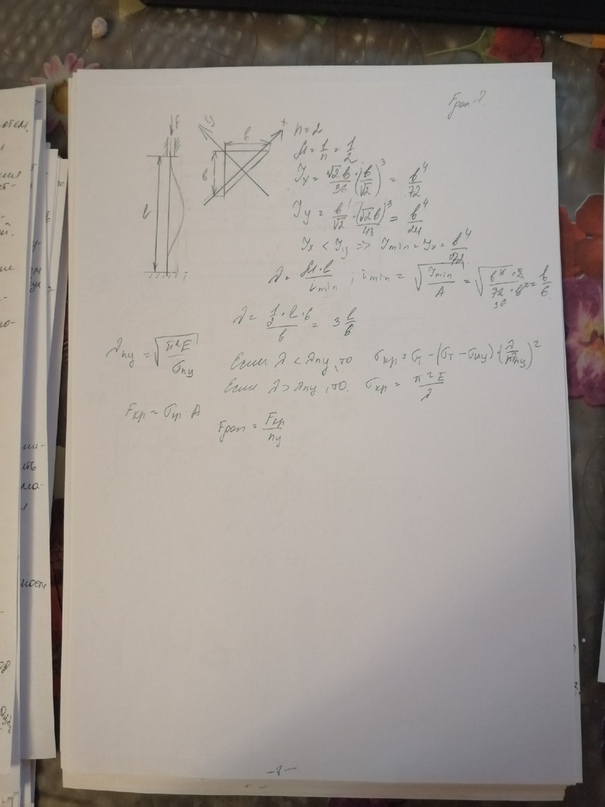 Fдоп-?
F
y
x
b
b
l
n=2
μ=1/n=1/2
Jx = √2b/36 · (b/√2)^3 = b^4/72
Jy = b/√2 · (√2b)^3/48 = b^4/24
Jx < Jy => Jmin = Jx = b^4/72
λ = μ·l/imin ; imin = √(Jmin/A) = √(b^4·2/72·b^2) = b/6
= 3 l/b
λпц = √(π²E/σпц)
Если λ < λпц, то σкр = σт - (σт - σпц)·(λ/λпц)^2
Если λ > λпц, то σкр = π²E/λ
Fкр = σкр · A
Fдоп = Fкр/nу
-8-